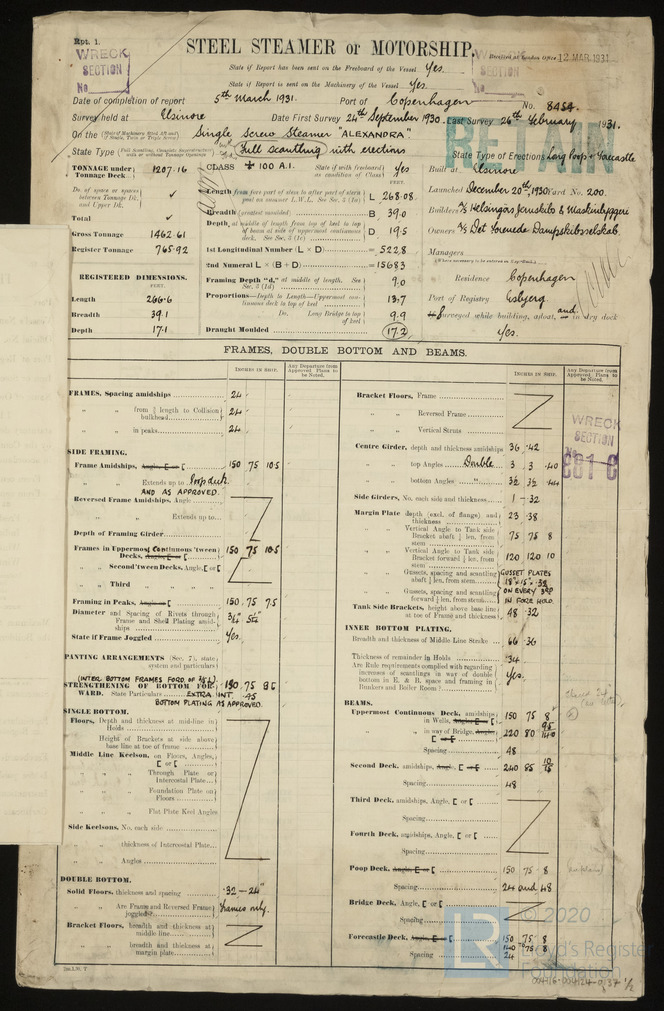 Rpt. 1.
WRECK SECTION No
STEEL STEAMER or MOTORSHIP.
WRECK SECTION No
Received at London Office 12 MAR 1931
State if Report has been sent on the Freeboard of the Vessel Yes
State if Report is sent on the Machinery of the Vessel Yes.
Date of completion of report 5th March 1931. Port of Copenhagen No. 8454.
Survey held at Elsinore Date First Survey 24th September 1930. Last Survey 26th February 1931.
RETAIN
On the Single Screw Steamer "ALEXANDRA".
State Type Full scantling with erections State Type of Erections Long poop & Forecastle
TONNAGE under Tonnage Deck 1207.16
CLASS 100 A.1. State if with freeboard as condition of Class Yes
Built at Elsinore
Launched December 20th, 1930 Yard No. 200.
Builders A/s Helsingørs Jernskibs & Maskinbyggeri
Owners A/s Det Forenede Dampskibsselskab
Managers
Residence Copenhagen
Port of Registry Esbjerg
Surveyed while building, afloat, and in dry dock
Yes.
Total
Gross Tonnage 1462.61
Register Tonnage 765.92
REGISTERED DIMENSIONS.
FEET.
Length 266.6
Breadth 39.1
Depth 17.1
Length from fore part of stem to after part of stern post on summer L.W.L. See Sec. 3 (1a) L 268.08
Breadth (greatest moulded) B 39.0
Depth at middle of length from top of keel to top of beam at side of uppermost continuous deck. See Sec. 3 (1c) D 19.5
1st Longitudinal Number (L × D) = 5228
2nd Numeral L × (B + D) = 15683
Framing Depth "d," at middle of length. See Sec. 3 (1d) 9.0
Proportions—Depth to Length—Uppermost continuous deck to top of keel 13.7
Do. Long Bridge to top of keel 9.9
Draught Moulded 17.2
FRAMES, DOUBLE BOTTOM AND BEAMS.
INCHES IN SHIP.
Any Departure from Approved Plans to be Noted.
INCHES IN SHIP.
Any Departure from Approved Plans to be Noted.
FRAMES, Spacing amidships 24
" " from ⅗ length to Collision bulkhead 24
" " in peaks 24
SIDE FRAMING.
Frame Amidships, Angle, E or [ 150 75 10.5
" " Extends up to poop deck
AND AS APPROVED.
Reversed Frame Amidships, Angle
" " Extends up to
Depth of Framing Girder
Frames in Uppermost Continuous 'tween Decks, Angle, E or [ 150 75 10.5
" Second 'tween Decks, Angle, E or [
" Third " " "
Framing in Peaks, Angle or [ 150 75 7.5
Diameter and Spacing of Rivets through Frame and Shell Plating amidships
State if Frame Joggled Yes.
PANTING ARRANGEMENTS (Sec. 7), state system and particulars
STRENGTHENING OF BOTTOM FORWARD. State Particulars EXTRA INT.
BOTTOM PLATING AS APPROVED.
SINGLE BOTTOM.
Floors, Depth and thickness at mid-line in Holds
Height of Brackets at side above base line at toe of frame
Middle Line Keelson, on Floors, Angles, E or [
" " Through Plate or Intercostal Plate
" " Foundation Plate on Floors
" " Flat Plate Keel Angles
Side Keelsons, No. each side
" " thickness of Intercostal Plate
" " Angles
DOUBLE BOTTOM.
Solid Floors, thickness and spacing .32 — 24"
" " Are Frame and Reversed Frame joggled? Frames only.
Bracket Floors, breadth and thickness at middle line
" " breadth and thickness at margin plate
Bracket Floors, Frame
" " Reversed Frame
" " Vertical Struts
Centre Girder, depth and thickness amidships 36 .42
" " top Angles Double 3 3 .40
" " bottom Angles " 3½ 3½ .44
Side Girders, No. each side and thickness 1 — .32
Margin Plate depth (excl. of flange) and thickness 23 .38
" " Vertical Angle to Tank side Bracket abaft ⅕ len. from stem 75 75 8
" " Vertical Angle to Tank side Bracket forward ⅕ len. from stem 120 120 10
" " Gussets, spacing and scantling abaft ⅕ len. from stem GUSSET PLATES 18" × 15" × .32
" " Gussets, spacing and scantling forward ⅕ len. from stem ON EVERY 3RD IN FORE HOLD.
Tank Side Brackets, height above base line at toe of Frame and thickness 48 .32
INNER BOTTOM PLATING.
Breadth and thickness of Middle Line Strake 66 .36
Thickness of remainder in Holds .34
Are Rule requirements complied with regarding increases of scantlings in way of double bottom in E. & B. space and framing in Bunkers and Boiler Room? Yes.
BEAMS.
Uppermost Continuous Deck, amidships in Wells, Angle, E or [ 150 75 8
" " in way of Bridge, Angle, E or [ 220 80
Spacing 48
Second Deck, amidships, Angle, E or [ 240 85
Spacing 48
Third Deck, amidships, Angle, E or [
Spacing
Fourth Deck, amidships, Angle, E or [
Spacing
Poop Deck, Angle, E or [ 150 75 8
Spacing 24 and 48
Bridge Deck, Angle, E or [
Spacing
Forecastle Deck, Angle, E or [ 150 75 8
140 75 8
Spacing 24
WRECK SECTION
No 881 C
LR
© 2020
Lloyd's Register Foundation